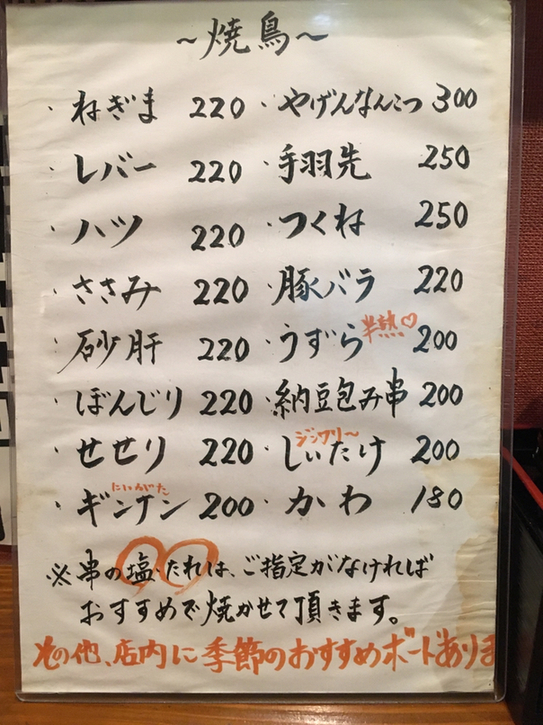 ～焼鳥～
・ねぎま 220 ・やげんなんこつ 300
・レバー 220 ・手羽先 250
・ハツ 220 ・つくね 250
・ささみ 220 ・豚バラ 220
・砂肝 220 ・うずら 半熟♡ 200
・ぼんじり 220 ・納豆包み串 200
・せせり 220 ・しいたけ ジューシー～ 200
・ギンナン にいがた 200 ・かわ 180
※串の塩・たれは、ご指定がなければ
おすすめで焼かせて頂きます。
その他、店内に季節のおすすめボードありま